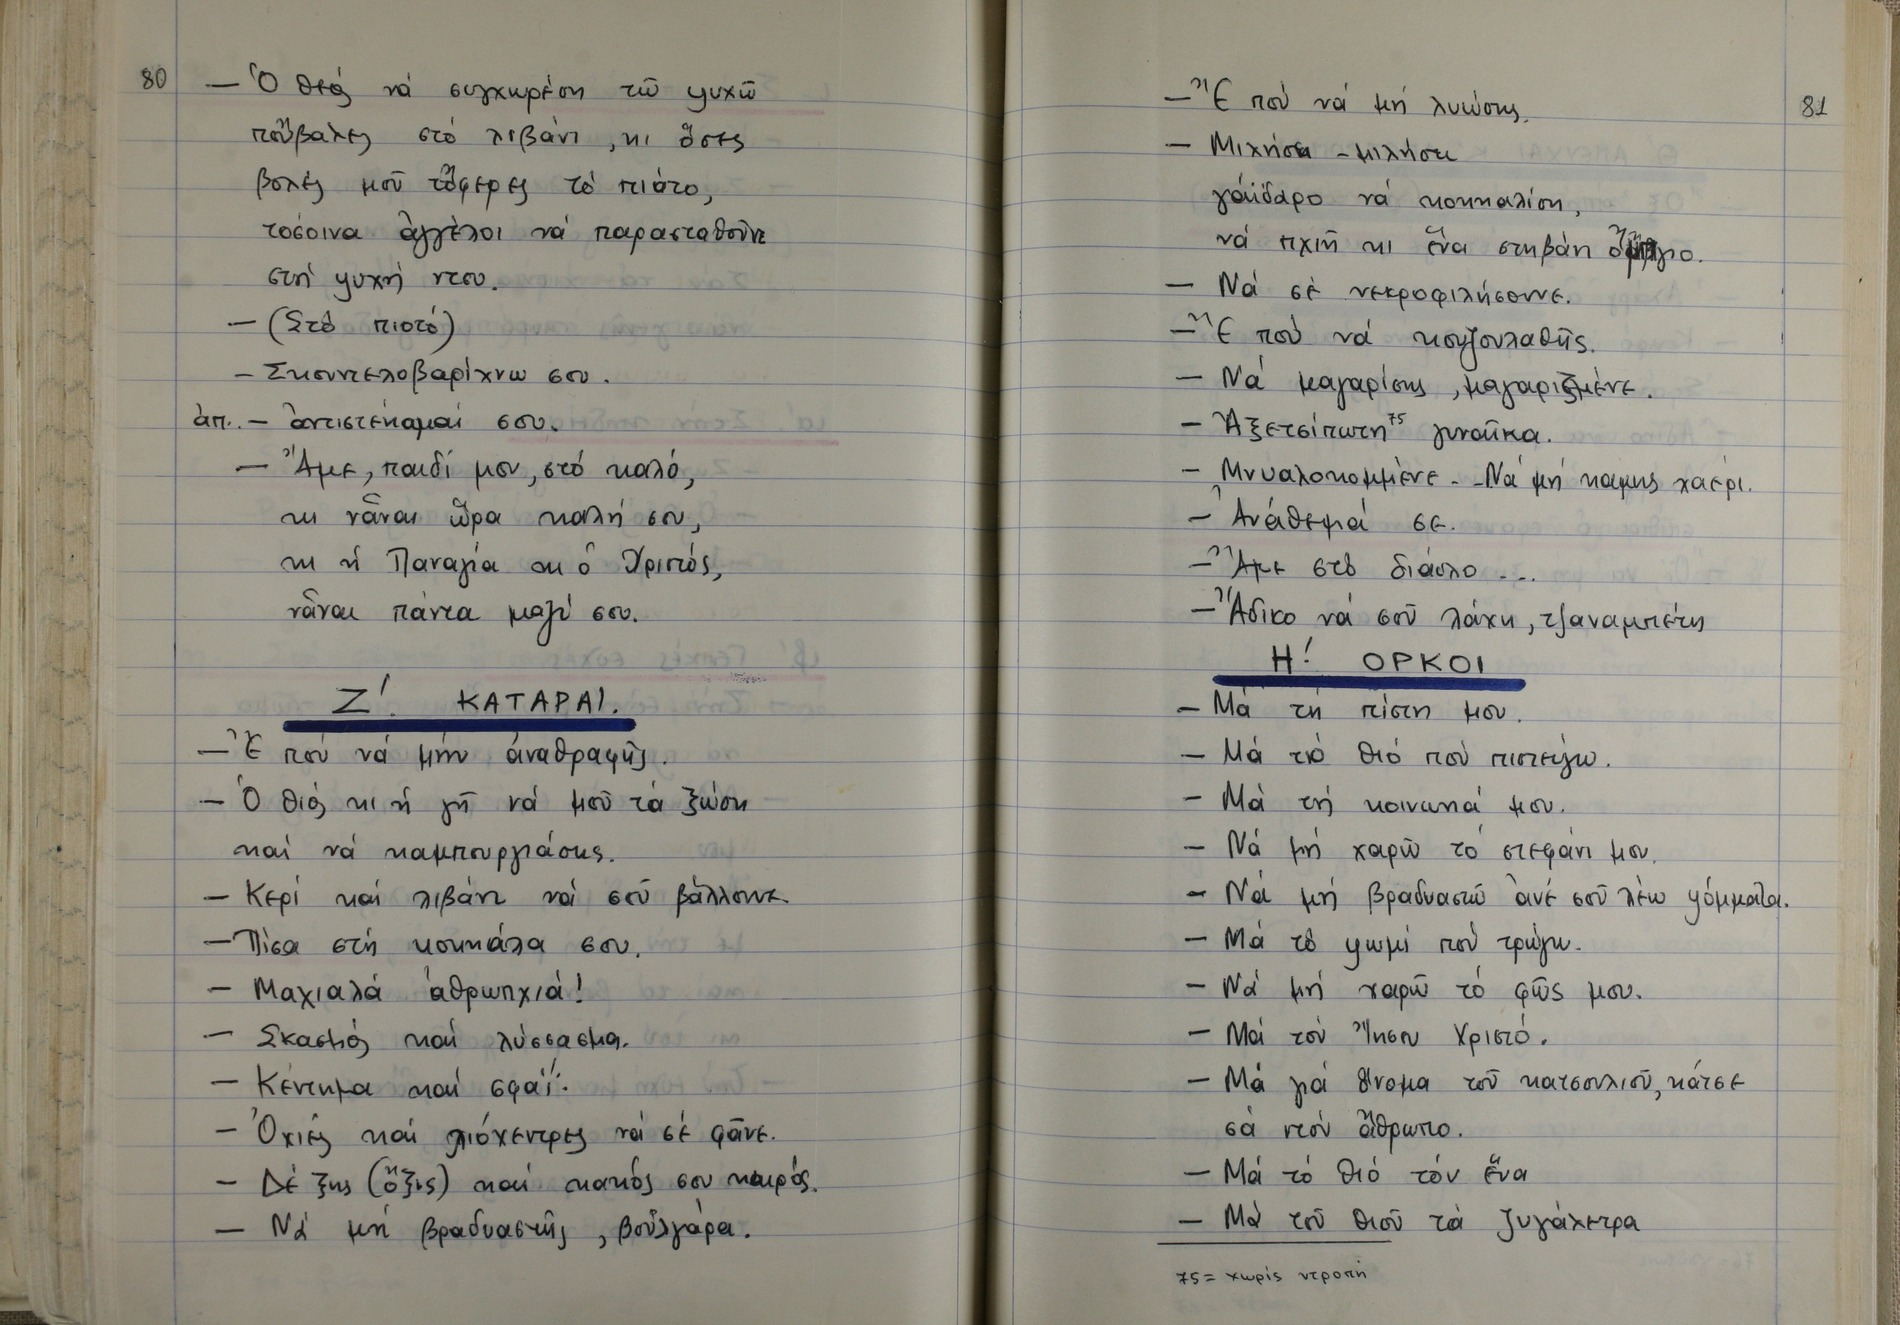 80
— Ὁ θεός νά συγχωρέση τῶ ψυχῶ
ποὔβαλες στό λιβάνι, κι ὅσες
βολές μοῦ τὄφερες τό πιάτο,
τοσοινα ἀγγέλοι νά παρασταθοῦνε
στή ψυχή ντου.
— (Στό πιοτό)
— Σκουντελοβαρίχνω σου.
ἀπ. — ἀντιστέκομαί σου.
— Ἄμε, παιδί μου, στό καλό,
κι νἆναι ὥρα καλή σου,
κι ἡ Παναγία κι ὁ Χριστός,
νἆναι πάντα μαζί σου.
Ζ! ΚΑΤΑΡΑΙ.
— Ἔ πού νά μήν ἀναθραφῆς.
— Ὁ θιός κι ἡ γῆ νά μοῦ τά ξώση
καί νά καμπουργιάσης.
— Κερί καί λιβάνι νά σοῦ βάλλουνε.
— Πίσα στή κουκάλα σου.
— Μαχιαλά ἀθρωπχιά!
— Σκασμός καί λύσσασμα.
— Κέντημα καί σφαΐ!.
— Ὀχιές καί λιόχεντρες νά σέ φᾶνε.
— Δέ ξης (ὄξις) καί κακός σου καιρός.
— Νά μή βραδυαστῆς, βούλγάρα.
81
— Ἔ πού νά μή λυώσης.
— Μιχήσε - μιλήσε
γάϊδαρο νά κοκκαλίση,
νά πχιῆ κι ἕνα στηβάνι
— Νά σέ νεκροφιλήσουνε.
— Ἔ πού νά κουζουλαθῆς.
— Νά μαγαρίσης, μαγαρισμένε.
— Ἀξετσίπωτη⁷⁵ γυναῖκα.
— Μυυαλοκομμένε. - Νά μή καμης χαέρι.
— Ἀνάθεμά σε.
— Ἄμε στό διάολο ...
— Ἄδικο νά σοῦ λάχη, τζαναμπέτη
Η! ΟΡΚΟΙ
— Μά τη πίστη μου.
— Μά τό θιό πού πιστεύγω.
— Μά τή κοινωνιά μου.
— Νά μή χαρῶ τό στεφάνι μου.
— Νά μή βραδυαστῶ ἀνέ σοῦ λέω ψόμματα.
— Μά τό ψωμί πού τρώγω.
— Νά μή χαρῶ τό φῶς μου.
— Μά τόν Ἰησου Χριστό.
— Μά γιά ὄνομα τοῦ κατσουλιοῦ, κάτσε
σά ντόν ἄθρωπο.
— Μά τό θιό τόν ἕνα
— Μά τοῦ θιοῦ τά ζυγάλετρα
75 = χωρίς ντροπή